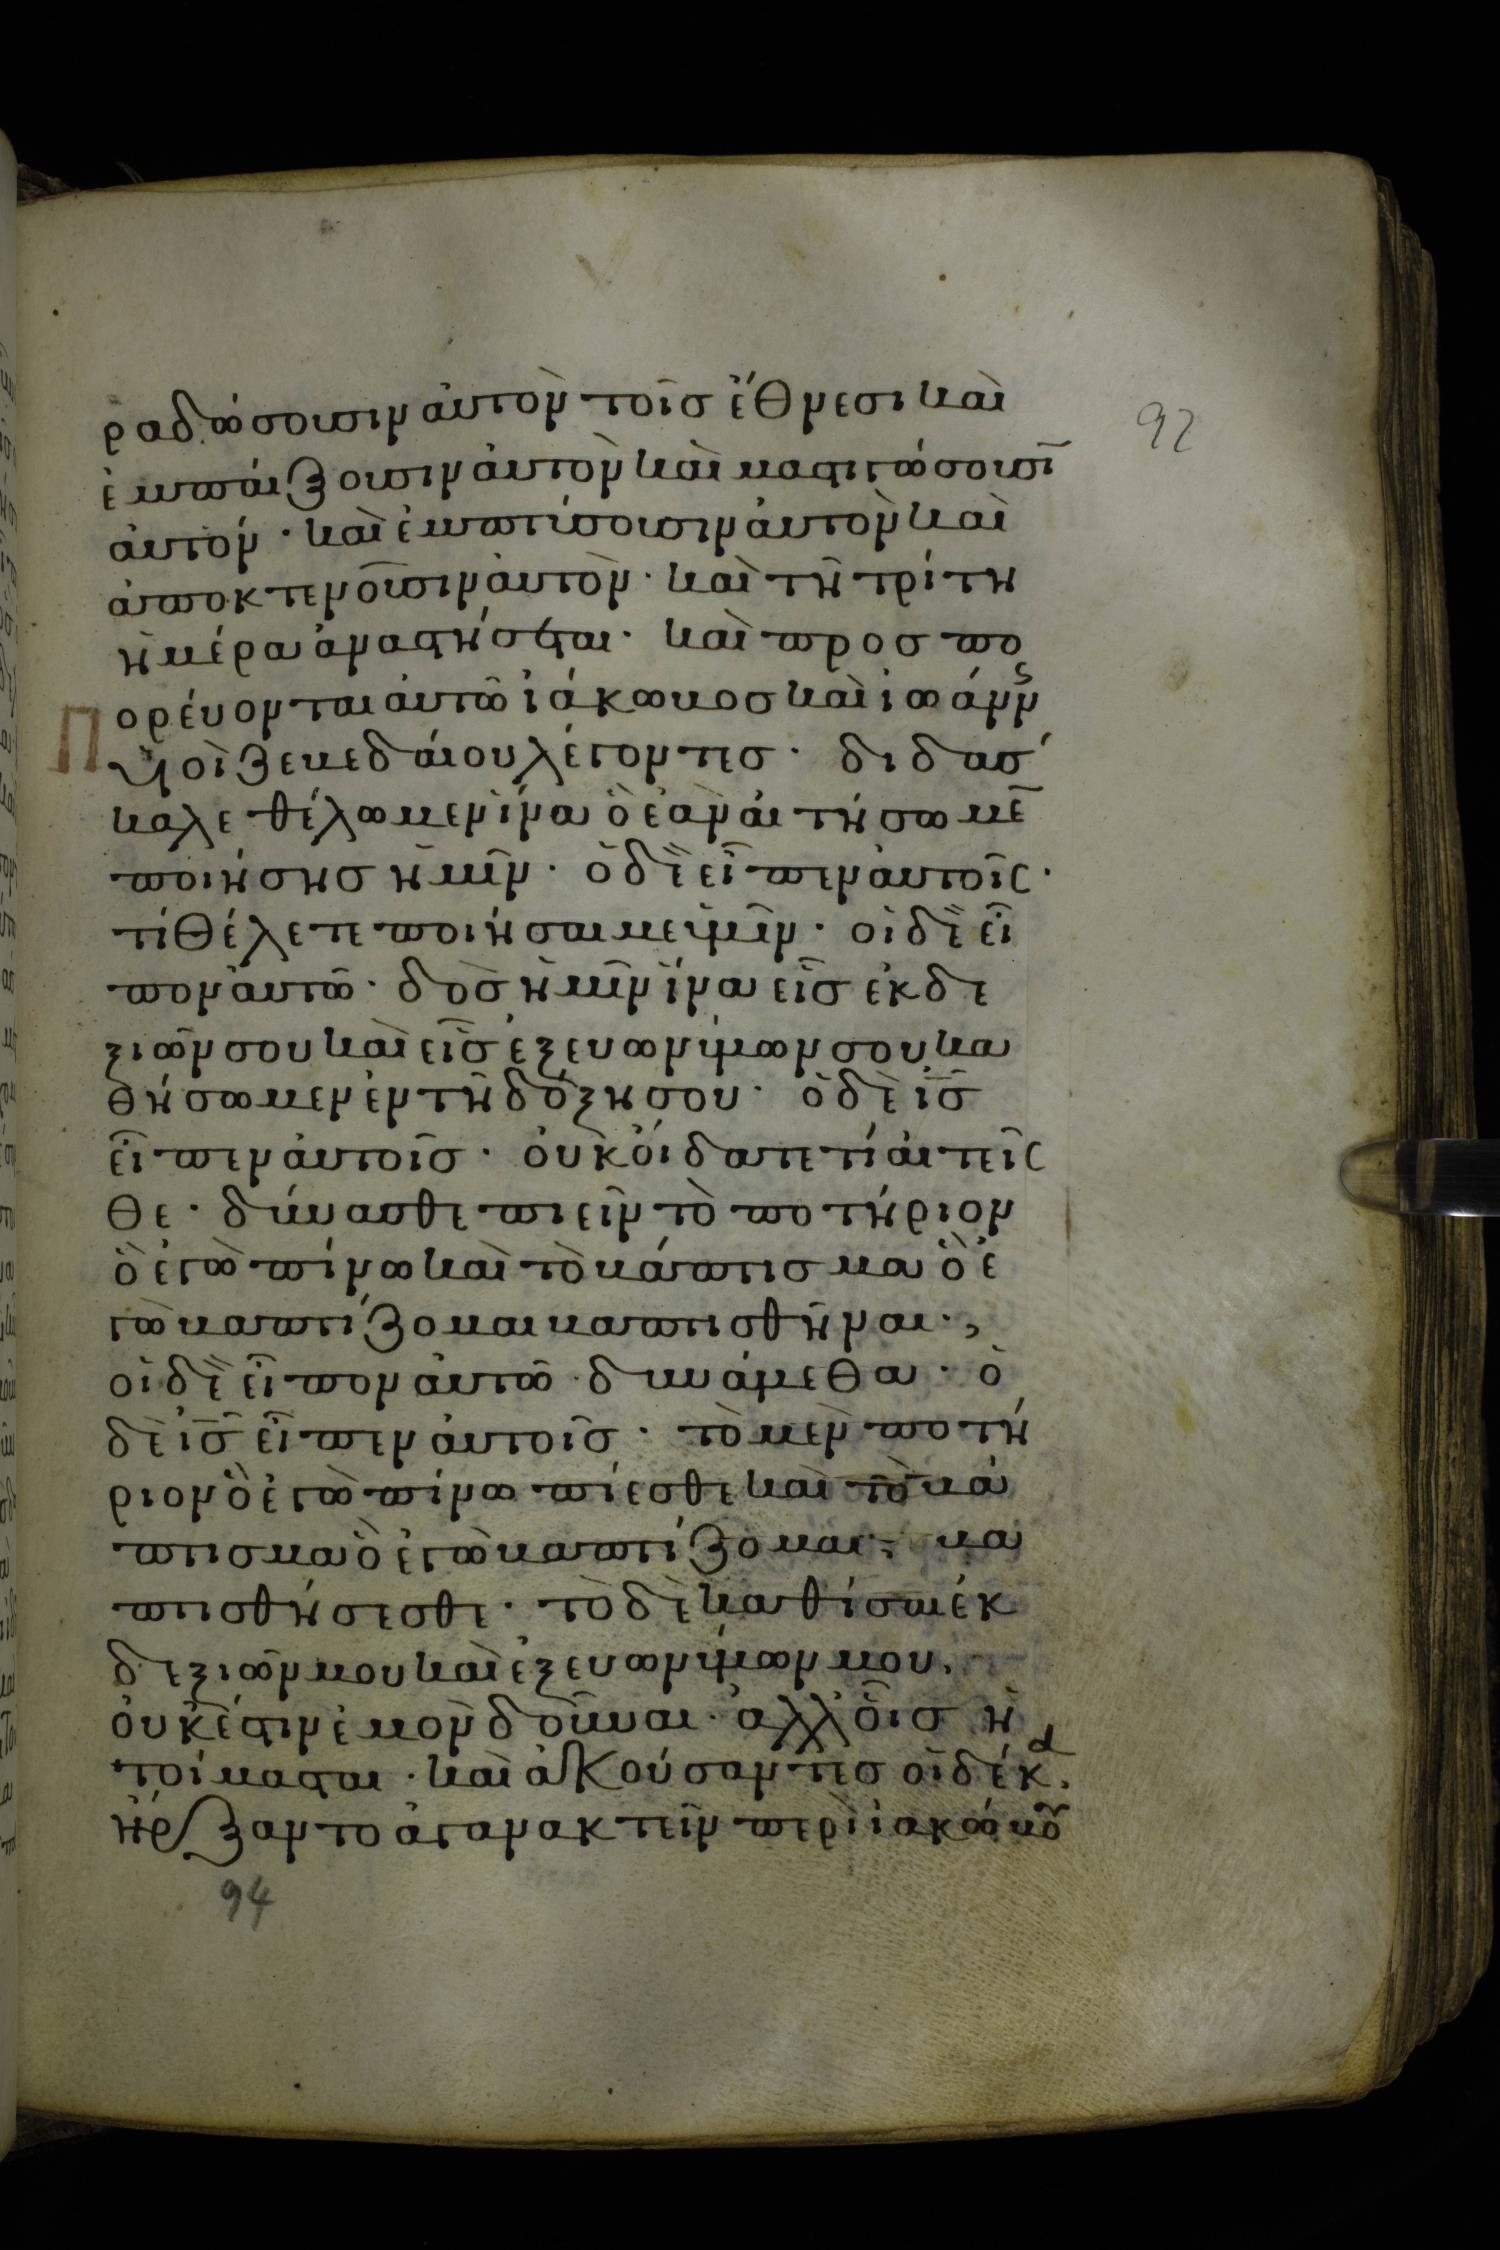 ραδώσουσιν ἀυτὸν τοῖσ ἔθνεσι καὶ
ἐμπάιξουσιν ἀυτὸν καὶ μαστιγώσουσῑ
ἀυτόν · καὶ ἐμπτύσουσιν ἀυτὸν καὶ
ἀποκτενοῦσιν ἀυτὸν · καὶ τῆ τρίτη
ἡμέρα ἀναστήσεται · καὶ προσπο
Πορέυονται ἀυτῶ ἰάκωβοσ καὶ ἰωάννης
υἱοὶ ζεβεδάιου λέγοντεσ · διδάσ
καλε θέλωμεν ἵνα ὃ ἐὰν ἀιτήσωμε̄
ποιήσησ ἡμῖν · ὁ δὲ εἶπεν ἀυτοῖς ·
τί θέλετε ποιῆσαι με ὑμῖν · οἱ δὲ εἶ
πον ἀυτῶ · δὸσ ἡμῖν ἵνα εἷσ ἐκ δε
ξιῶν σου καὶ εἷσ ἐξ ευωνύμων σου κα
θήσωμεν ἐν τῆ δόξη σου · ὁ δὲ ι̅σ̅
εἶπεν ἀυτοῖσ · ὀυκ ὀίδατε τί ἀιτεῖς
θε · δύνασθε πιεῖν τὸ ποτήριον
ὃ ἐγὼ πίνω καὶ τὸ βάπτισμα ὃ ἐ
γὼ βαπτίζομαι βαπτισθῆναι · ,
οἱ δὲ εἶπον ἀυτῶ · δυνάμεθα · ὁ
δὲ ι̅σ̅ εἶπεν ἀυτοῖσ · τὸ μὲν ποτή
ριον ὃ ἐγὼ πίνω πίεσθε καὶ τὸ βά
πτισμα ὃ ἐγὼ βαπτίζομαι , βα
πτισθήσεσθε · τὸ δὲ καθίσαι ἐκ
δεξιῶν μου καὶ ἐξ ευωνύμων μου .
ὀυκ ἔστιν ἐμὸν δοῦναι · ἀλλ' οἷσ ἡ
τοίμασται · καὶ ἀκούσαντεσ οἱ δέκα .
ἤρξαντο ἀγανακτεῖν περὶ ἰακώβου
92
94